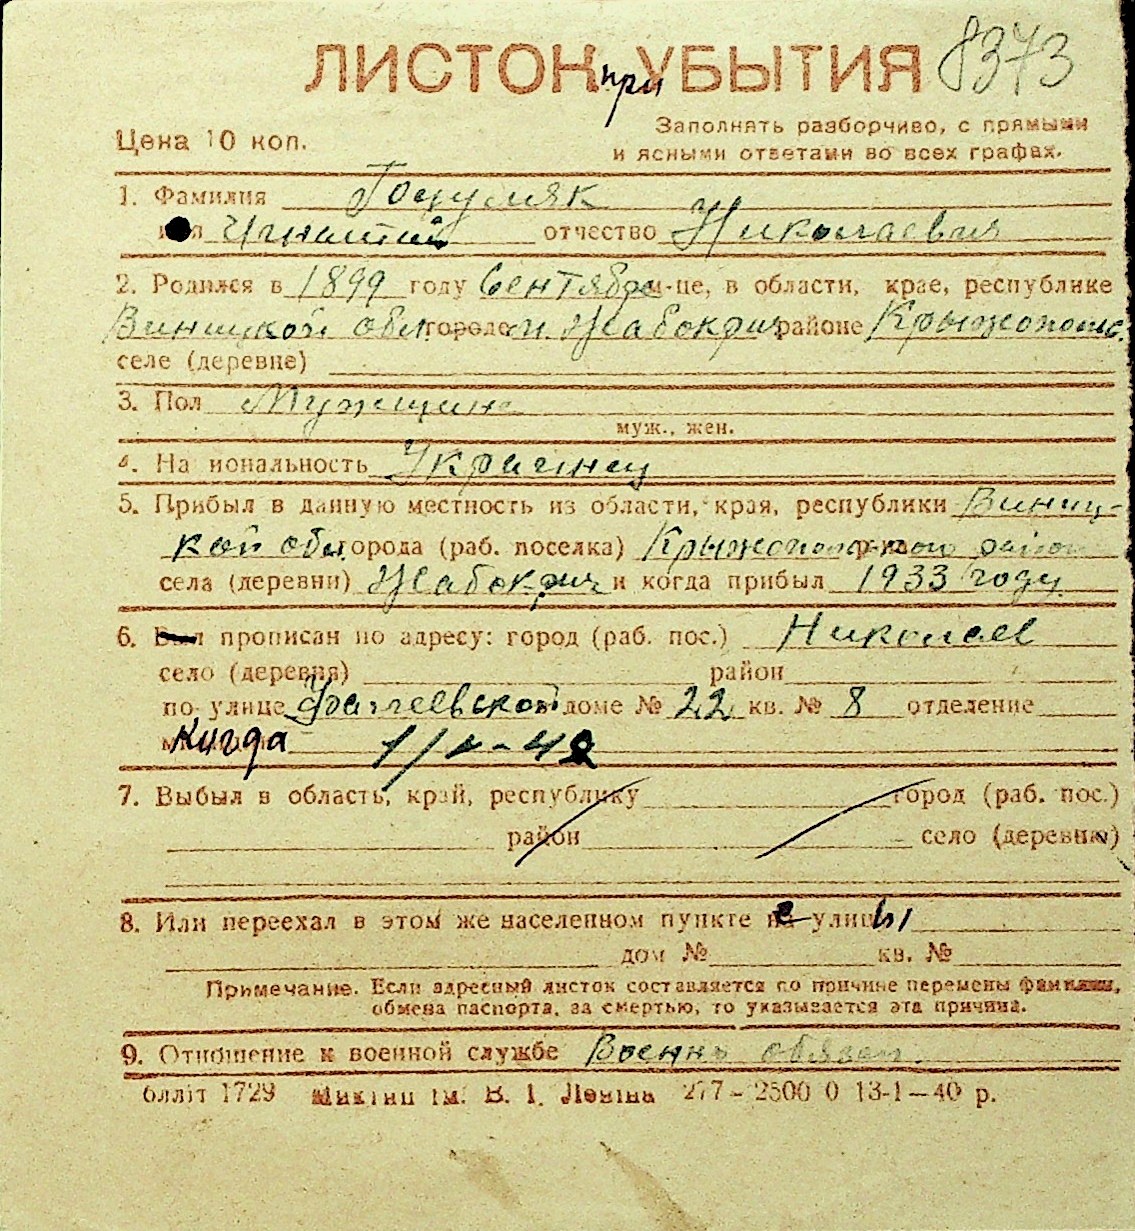 ЛИСТОК при УБЫТИЯ 8373
Цена 10 коп.
Заполнять разборчиво, с прямыми
и ясными ответами во всех графах.
1. Фамилия Гоцуляк
Игнатий отчество Николаевич
2. Родился в 1899 году Сентябре м-це, в области, крае, республике
Виницкой обл городе м. Жабокрич районе Крыжополь.
селе (деревне)
3. Пол Мужщина
муж., жен.
4. На иональность Украинец
5. Прибыл в данную местность из области, края, республики Виниц-
кой обл. города (раб. поселка) Крыжопольского район
села (деревни) Жабокрич и когда прибыл 1933 году
6. Был прописан по адресу: город (раб. пос.) Николаев
село (деревня) район
по улице доме № 22 кв. № 8 отделение
Когда
7. Выбыл в область, край, республику город (раб. пос.)
район село (деревню)
8. Или переехал в этом же населенном пункте улицы
дом № кв. №
Примечание. Если адресный листок составляется по причине перемены фамилии,
обмена паспорта, за смертью, то указывается эта причина.
9. Отношение к военной службе Военно обязан.
білліт 1729 ім. В. І. Леніна 277 – 2500 0 13-1–40 р.